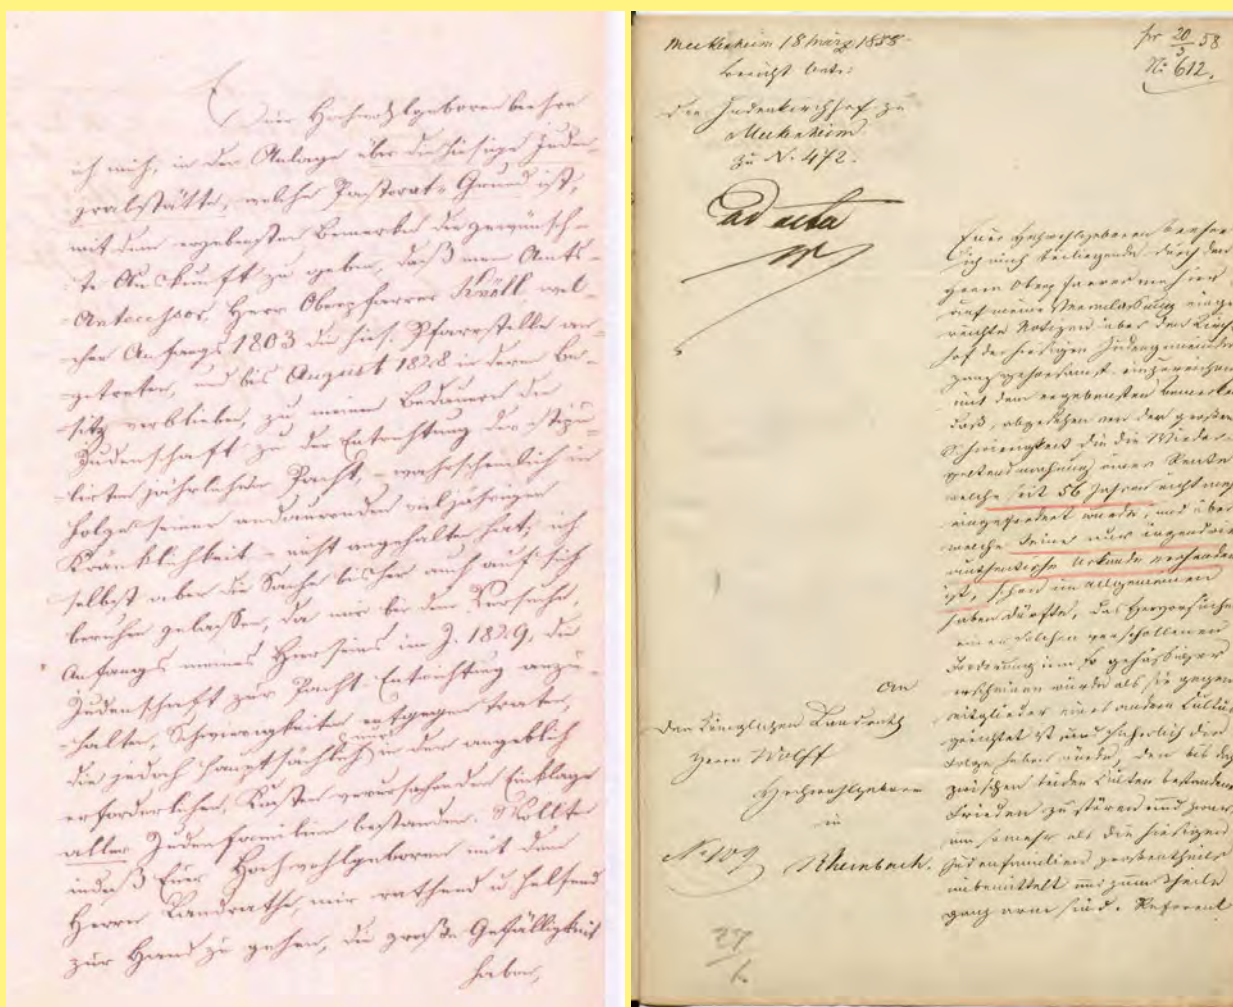 Euer Hochwohlgeboren beehre
ich mich, in der Anlage über die hiesige Juden-
grabstätte, welche Pastorat-Grund ist,
mit dem ergebensten Bemerken die gewünsch-
te Auskunft zu geben, daß mein Amts-
Antecessor, Herr Oberpfarrer Knöll, wel-
cher Anfangs 1803 die hies. Pfarrstelle an-
getreten, und bis August 1828 in deren Be-
sitz verblieben, zu meinem Bedauern die
Judenschaft zu der Entrichtung der stipu-
lirten jährlichen Pacht, - wahrscheinlich in
Folge seiner andauernden vieljährigen
Kränklichkeit - nicht angehalten hat; ich
selbst aber die Sache bisher auch auf sich
beruhen gelassen, da mir bei dem Versuche,
Anfangs meines Hierseins im J. 1829, die
Judenschaft zur Pacht-Entrichtung anzu-
halten, Schwierigkeiten entgegen traten,
die jedoch hauptsächlich nur in der angeblich
erforderlichen, Kosten verursachenden Einklage
aller Judenfamilien bestanden. Wollte
indeß Euer Hochwohlgeboren mit dem
Herrn Landrathe, mir rathend u. helfend
zur Hand zu gehen, die große Gefälligkeit
haben,
Meckenheim 18 März 1858
Bericht betr:
Den Judenkirchhof zu
Meckenheim
zu N. 472.
ad acta
An
den Königlichen Landrath
Herrn Wolff
Hochwohlgeboren
in
Rheinbach.
No 109
pr 20/3 58
No 612.
Euer Hochwohlgeboren beehre
ich mich beiliegende durch den
Herrn Oberpfarrer
auf meine Veranlassung einge
reichte Notizen über den Kirch
hof der hiesigen Judengemeinde
ganz gehorsamst einzureichen
mit dem ergebensten Bemerken
daß, abgesehen von der großen
Schwierigkeit die die Wieder-
geltendmachung einer Rente
welche seit 56 Jahren nicht mehr
eingefordert wurde, und über
welche keine nur irgendwie
authentische Urkunde vorhanden
ist, schon im allgemeinen
haben dürfte, das Hervorsuchen
einer solchen verschollenen
Forderung um so gehässiger
erscheinen würde als sie gegen
Mitglieder eines andern Cultus
gerichtet ist und sicherlich die
Folge haben würde, den bis dahin
zwischen beiden Culten bestandenen
Frieden zu stören und zwar
um so mehr als die hiesigen
Judenfamilien großentheils
unbemittelt und zum Theile
ganz arm sind. Referent